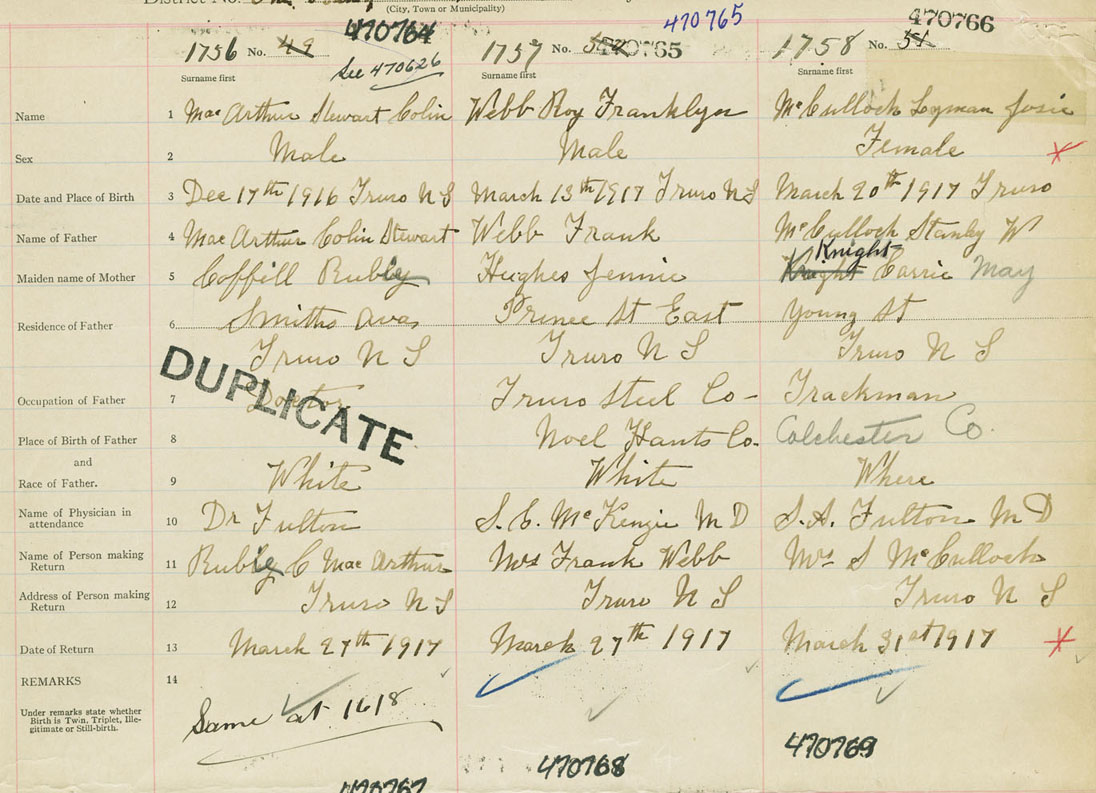 District No.
(City, Town or Municipality)
470764 470765 470766
1756 No. 49 1757 No. 470765 1758 No. 51
See 470626
Surname first Surname first Surname first
Name 1 MacArthur Stewart Colin Webb Roy Franklyn McCulloch Lyman Josie
Sex 2 Male Male Female X
Date and Place of Birth 3 Dec 17th 1916 Truro N S March 13th 1917 Truro N S March 20th 1917 Truro
Name of Father 4 MacArthur Colin Stewart Webb Frank McCulloch Stanley W
Knight
Maiden name of Mother 5 Coffill Rubiy Hughes Jennie Knight Carrie May
Residence of Father 6 Smiths Avas Prince St East Young St
Truro N S Truro N S Truro N S
DUPLICATE
Occupation of Father 7 Doctor Truro Steel Co - Trackman
Place of Birth of Father 8 Noel Hants Co. Colchester Co.
and
Race of Father. 9 White White Where
Name of Physician in
attendance 10 Dr Fulton S. C. McKenzie M D S. A. Fulton M D
Name of Person making
Return 11 Rubiy C MacArthur Mrs Frank Webb Mrs S McCulloch
Address of Person making
Return 12 Truro N S Truro N S Truro N S
Date of Return 13 March 27th 1917 March 27th 1917 March 31st 1917 X
REMARKS 14
Under remarks state whether
Birth is Twin, Triplet, Ille-
gitimate or Still-birth.
Same at 1618
470767 470768 470769